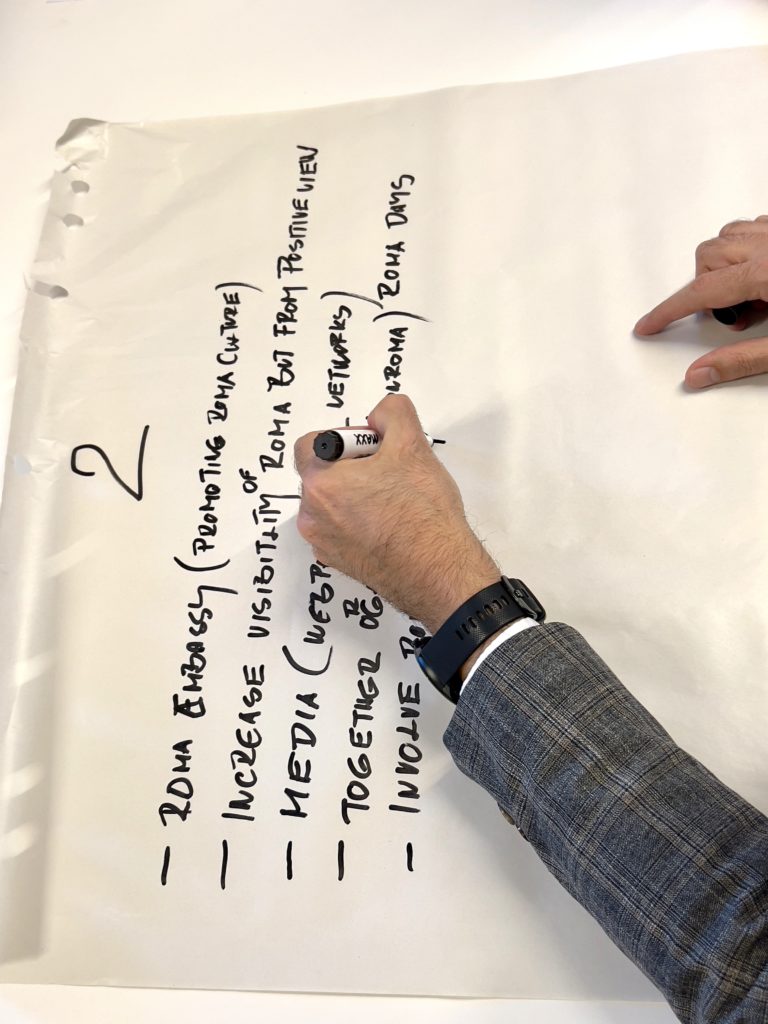 2
- ROMA EMBASSY (PROMOTING ROMA CULTURE)
- INCREASE VISIBILITY OF ROMA BUT FROM POSITIVE VIEW
- MEDIA ( NETWORKS)
- TOGETHER ROMA) ROMA DAYS
- INVOLVE
MAXX